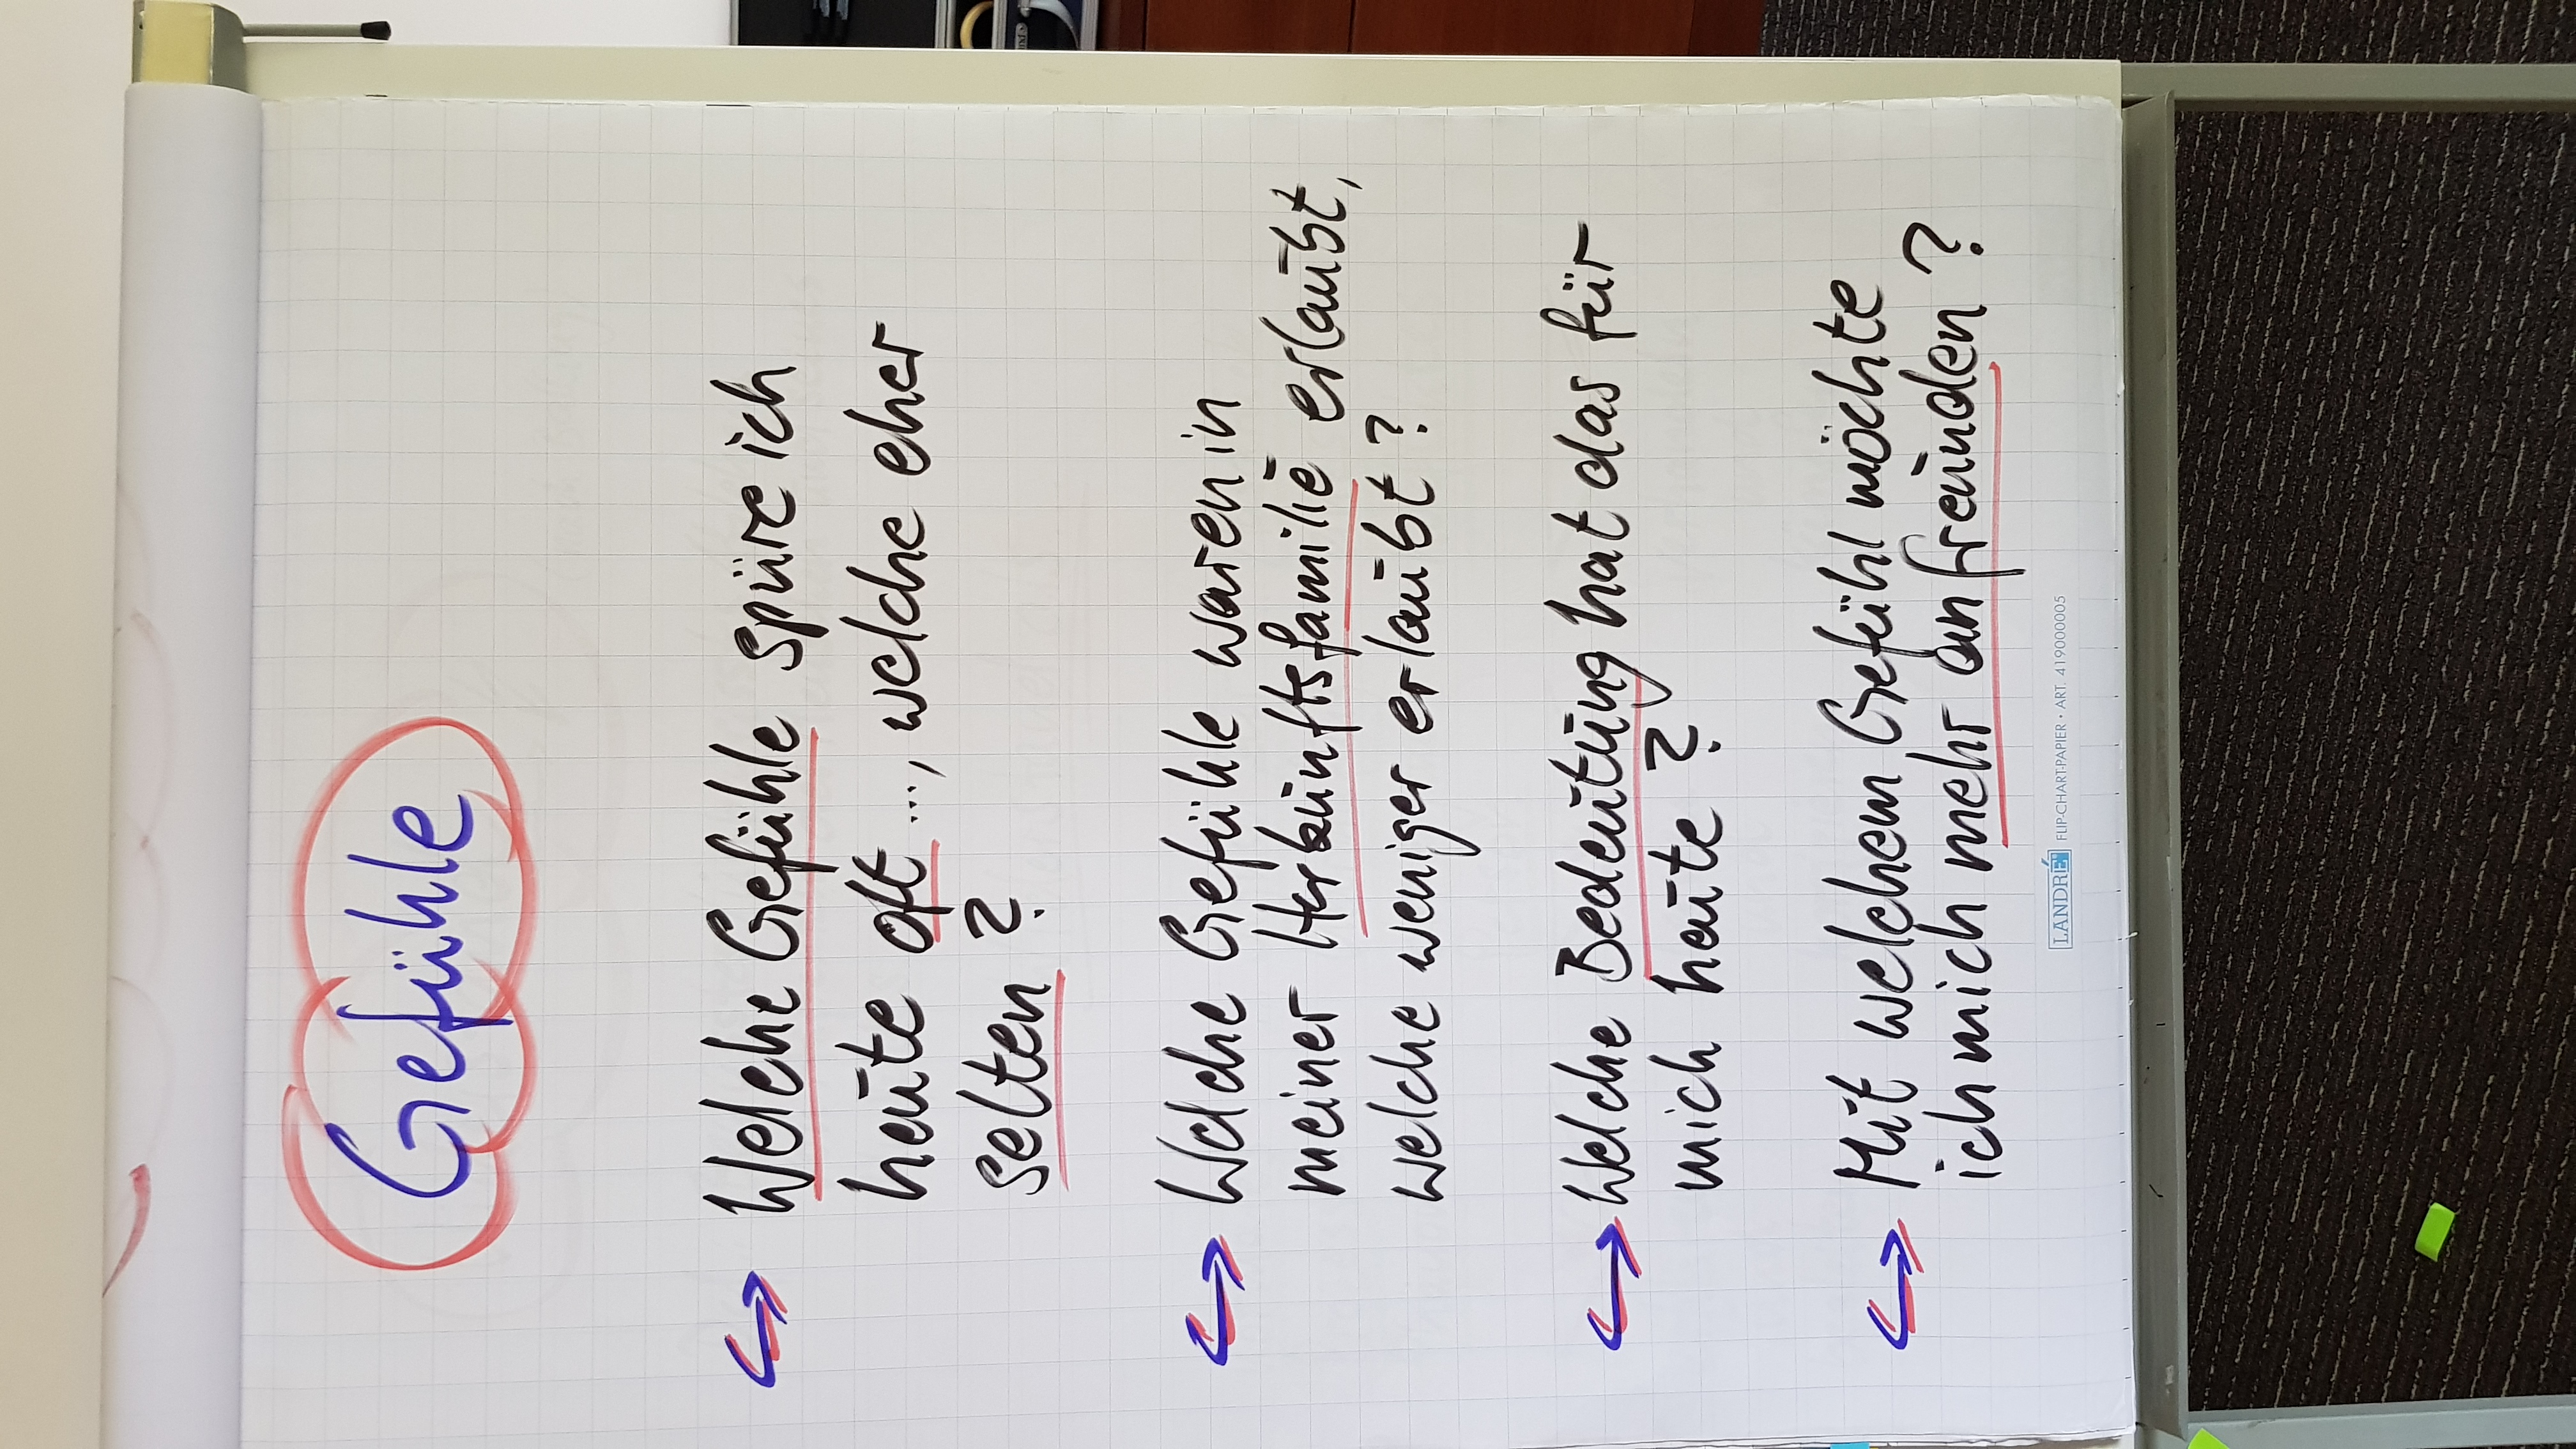 Gefühle
Welche Gefühle spüre ich
heute oft ..., welche eher
selten ?
Welche Gefühle waren in
meiner Herkunftsfamilie erlaubt,
welche weniger erlaubt ?
Welche Bedeutung hat das für
mich heute ?
Mit welchem Gefühl möchte
ich mich mehr anfreunden ?
LANDRÉ FLIP-CHART-PAPIER • ART. 419000005